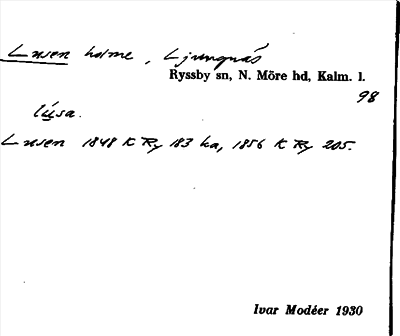 Lusen holme, Ljungnäs
Ryssby sn, N. Möre hd, Kalm. l.
98
lú̱sa.
Lusen 1848 K Ry 183 ka, 1856 K Ry 205.
Ivar Modéer 1930